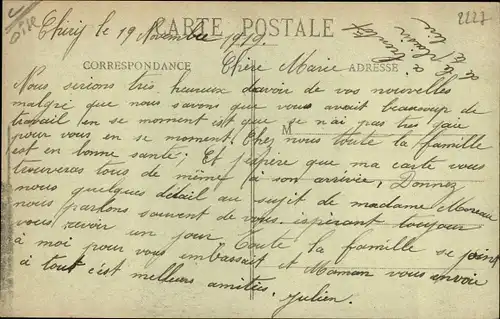 2227
Oise
CARTE POSTALE
Thiry le 19 Novembre 1919.
CORRESPONDANCE
ADRESSE
Chère Marie
Nous serions très heureux d'avoir de vos nouvelles
malgré que nous savons que vous avait beaucoup de
travail en se moment est que se n'ai pas très gaie
M
pour vous en se moment. Chez nous toute la famille
est en bonne santé; Et j'espère que ma carte vous
trouveras tous de même à son arrivée, Donnez
nous quelques détail au sujet de madame Moreau
nous parlons souvent de vous. ispérant toujour
vous revoir un jour Toute la famille se joint
à moi pour vous embrassait et Maman vous envoie
à tout c'est meilleurs amitiés. Julien.
à bientôt